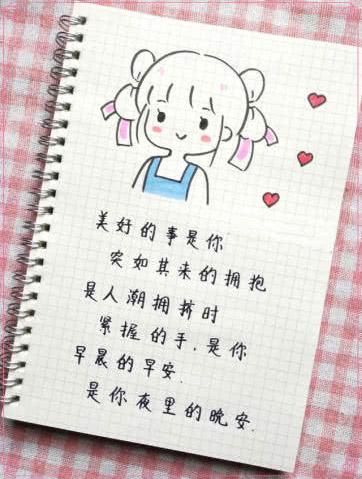 美好的事是你
突如其来的拥抱
是人潮拥挤时
紧握的手.是你
早晨的早安.
是你夜里的晚安.